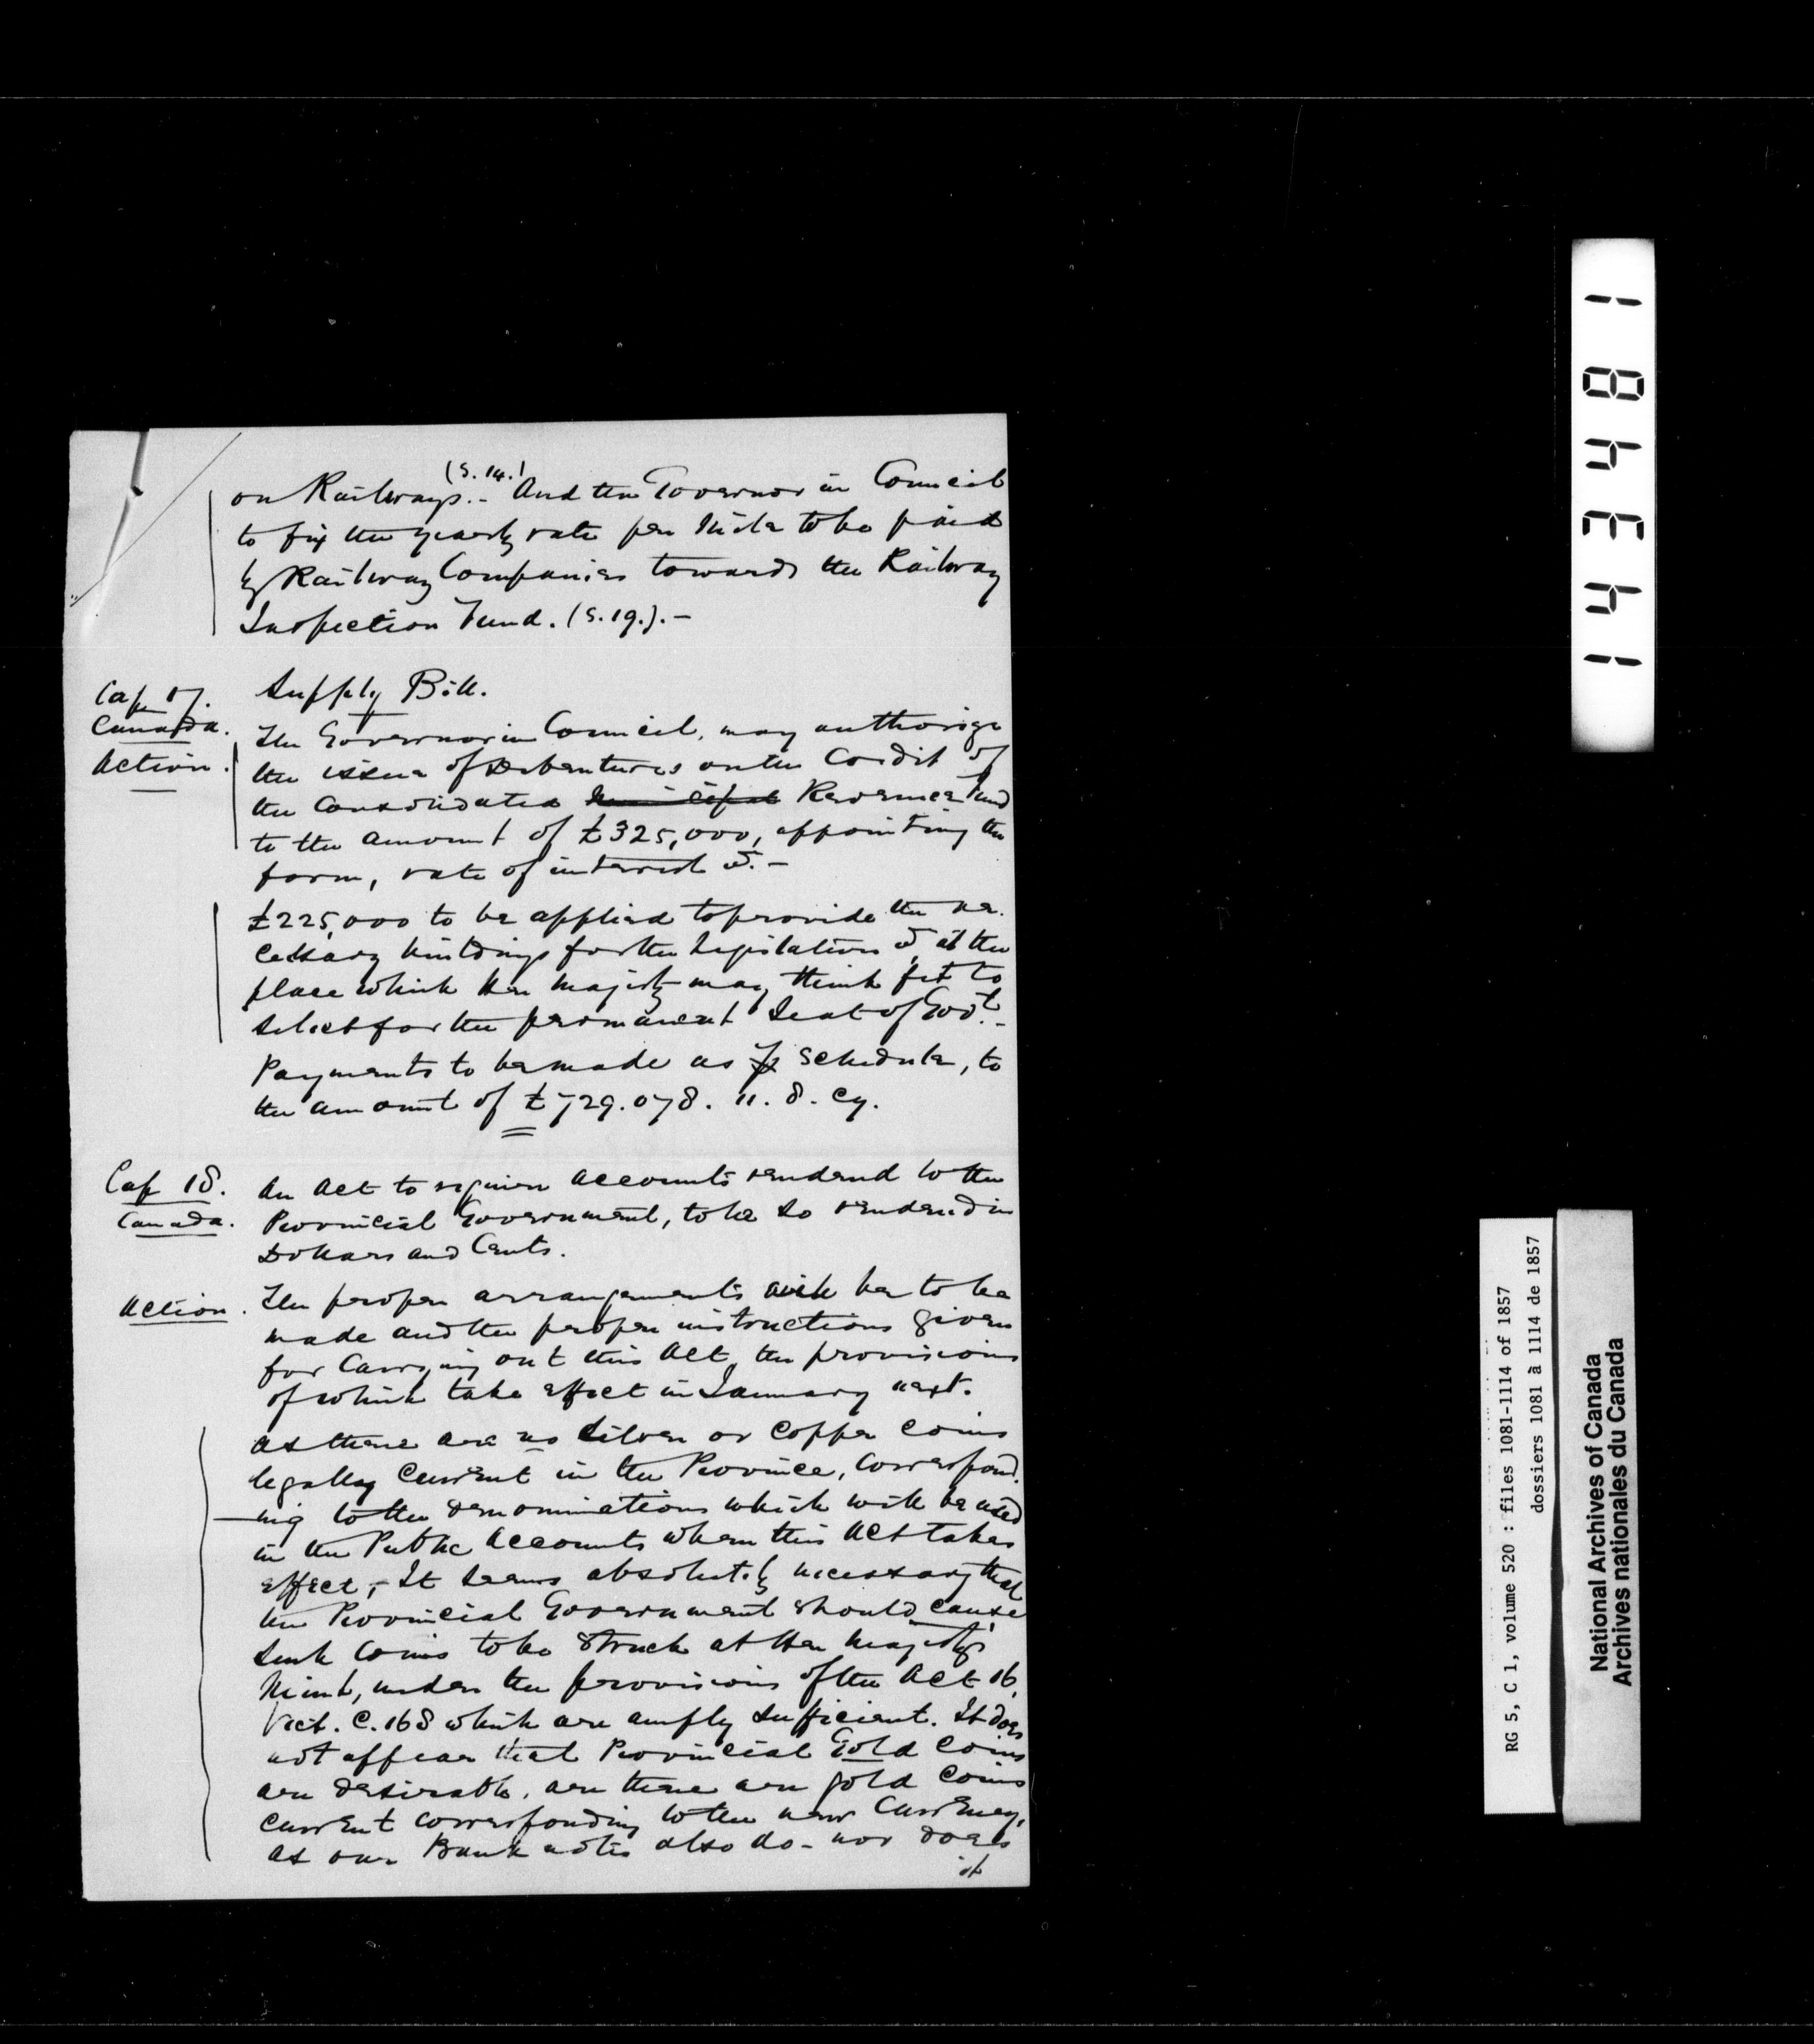 (S. 14.)
on Railways.- And the Governor in Council
to fix the yearly rate per Mile to be paid
by Railway Companies towards the Railway
Inspection Fund. (S. 19.).-
Cap 17.
Canada.
Action.
Supply Bill.
The Governor in Council, may authorize
the issue of Debentures on the Credit of
the Consolidated Municipal Revenue Fund
to the amount of £325,000, appointing the
form, rate of interest &.-
£225,000 to be applied to provide the ne-
cessary buildings for the Legislature &, at the
place which Her Majesty may think fit to
select for the permanent Seat of Govt.-
Payments to be made as p Schedule, to
the amount of £729.078. 11. 8. Cy.
Cap 18.
Canada.
An Act to require Accounts rendered to the
Provincial Government, to be so rendered in
Dollars and Cents.
Action.
The proper arrangements will be to be
made and the proper instructions given
for Carrying out this Act, the provisions
of which take effect in January next.
As there are no Silver or Copper Coins
legally Current in the Province, Correspond-
ing to the denominations which will be used
in the Public Accounts when this Act takes
effect,- It seems absolutely necessary that
the Provincial Government should cause
such Coins to be Struck at Her Majesty's
Mint, under the provisions of the Act 16,
Vict. C. 168 which are amply sufficient. It does
not appear that Provincial Gold Coins
are desirable, are there are gold Coins
current corresponding to the new Currency,
as our Bank notes also do - nor does
it
14348 1
RG 5, C 1, volume 520 : files 1081-1114 of 1857
dossiers 1081 à 1114 de 1857
National Archives of Canada
Archives nationales du Canada